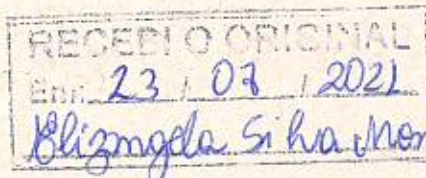 RECEBI O ORIGINAL
Em: 23 / 07 / 2021
Elizangela Silva